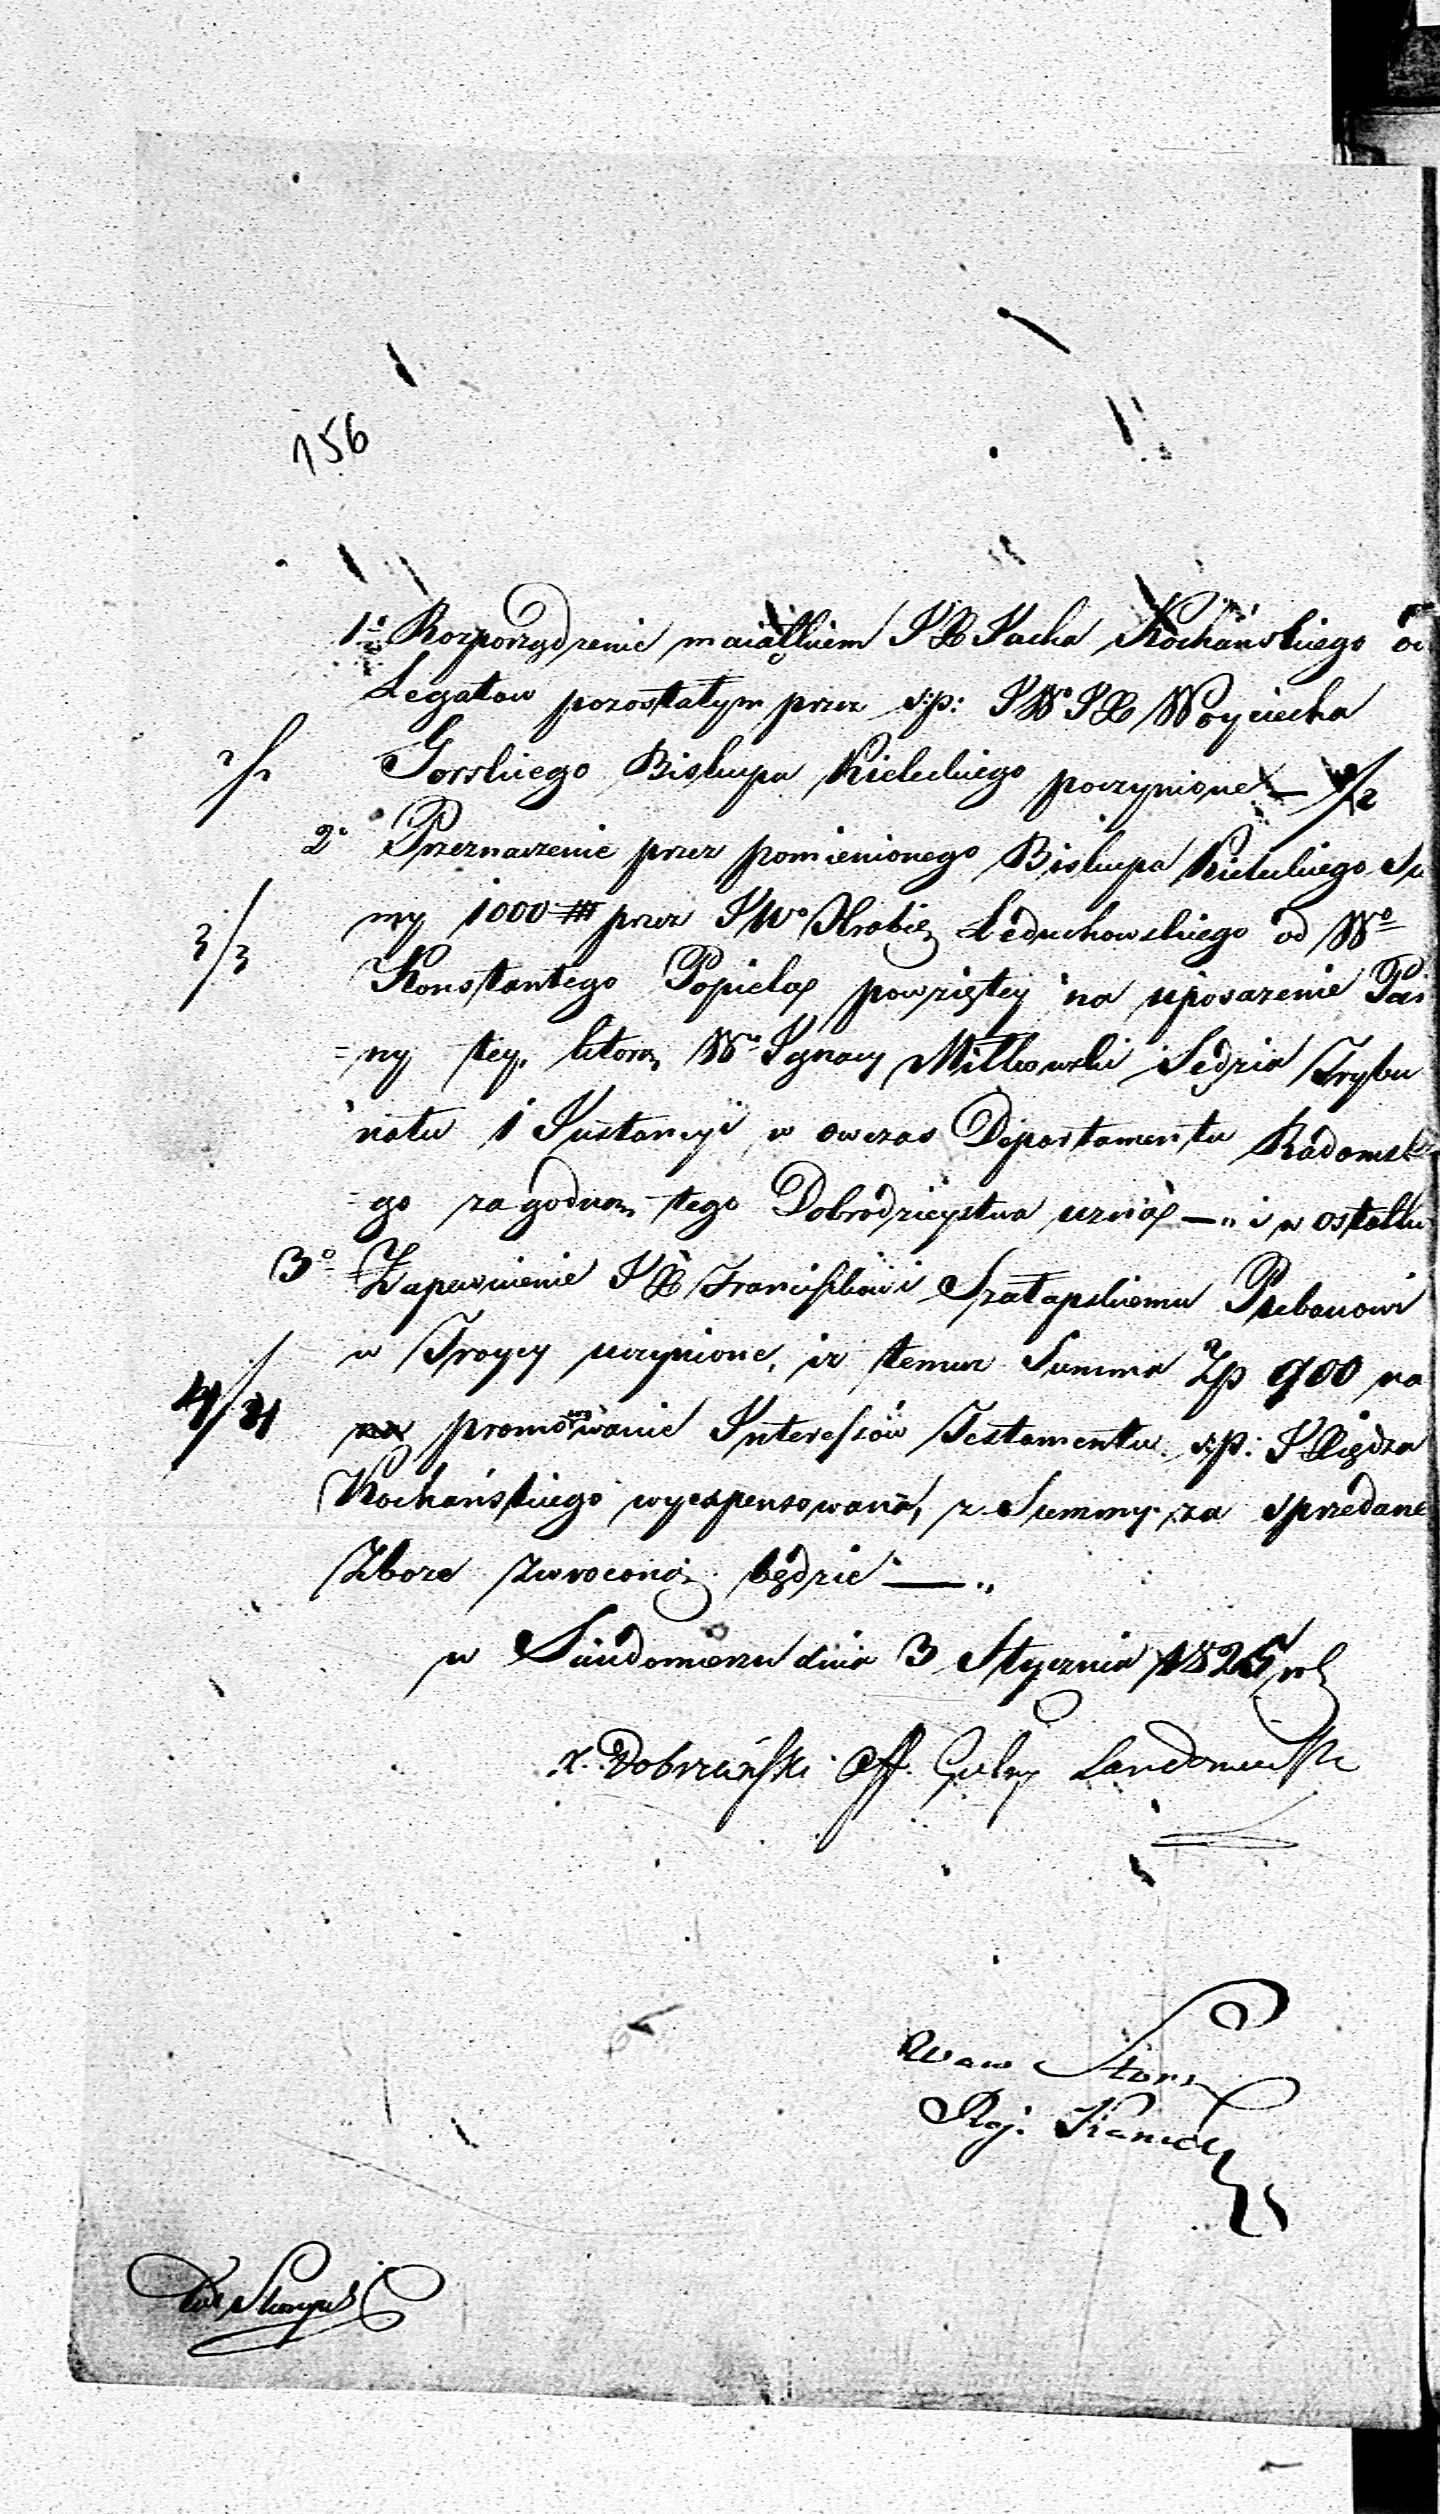 156
1o Rozporządzenie maiątkiem JX Jacka Kochańskiego od
Legatow pozostałym przez ś:p: JWo JX Woyciecha
Gorskiego Biskupa Kieleckiego poczynione — 2/2
2o Przeznaczenie przez pomienionego Biskupa Kieleckiego Su
3/3
my 1000 # przez JWo Hrabię Leduchowskiego od Wo
Konstantego Popiela powziętey na uposażenie Pan
=ny tey, którą Wo Ignacy Milkowski Sędzia Trybu
nału 1 Instancyi w owczas Departamentu Radomskie
=go za godną tego Dobrodzieystwa uzna — „ i w ostatku
3o Zapewnienie JX Franciszkowi Szałapskiemu Plebanowi
w Troycy uczynione, iż temuż Summa Zp 900 na
4/4
promowanie Interessów Testamentu ś:p: JXiędza
Kochańskiego wyexpensowana, z Summy za sprzedane
Zboże zwroconą będzie — „
w Sandomierzu dnia 3 Stycznia 1825 rk
X. Dobrzański Off. Gulny Sandomierski